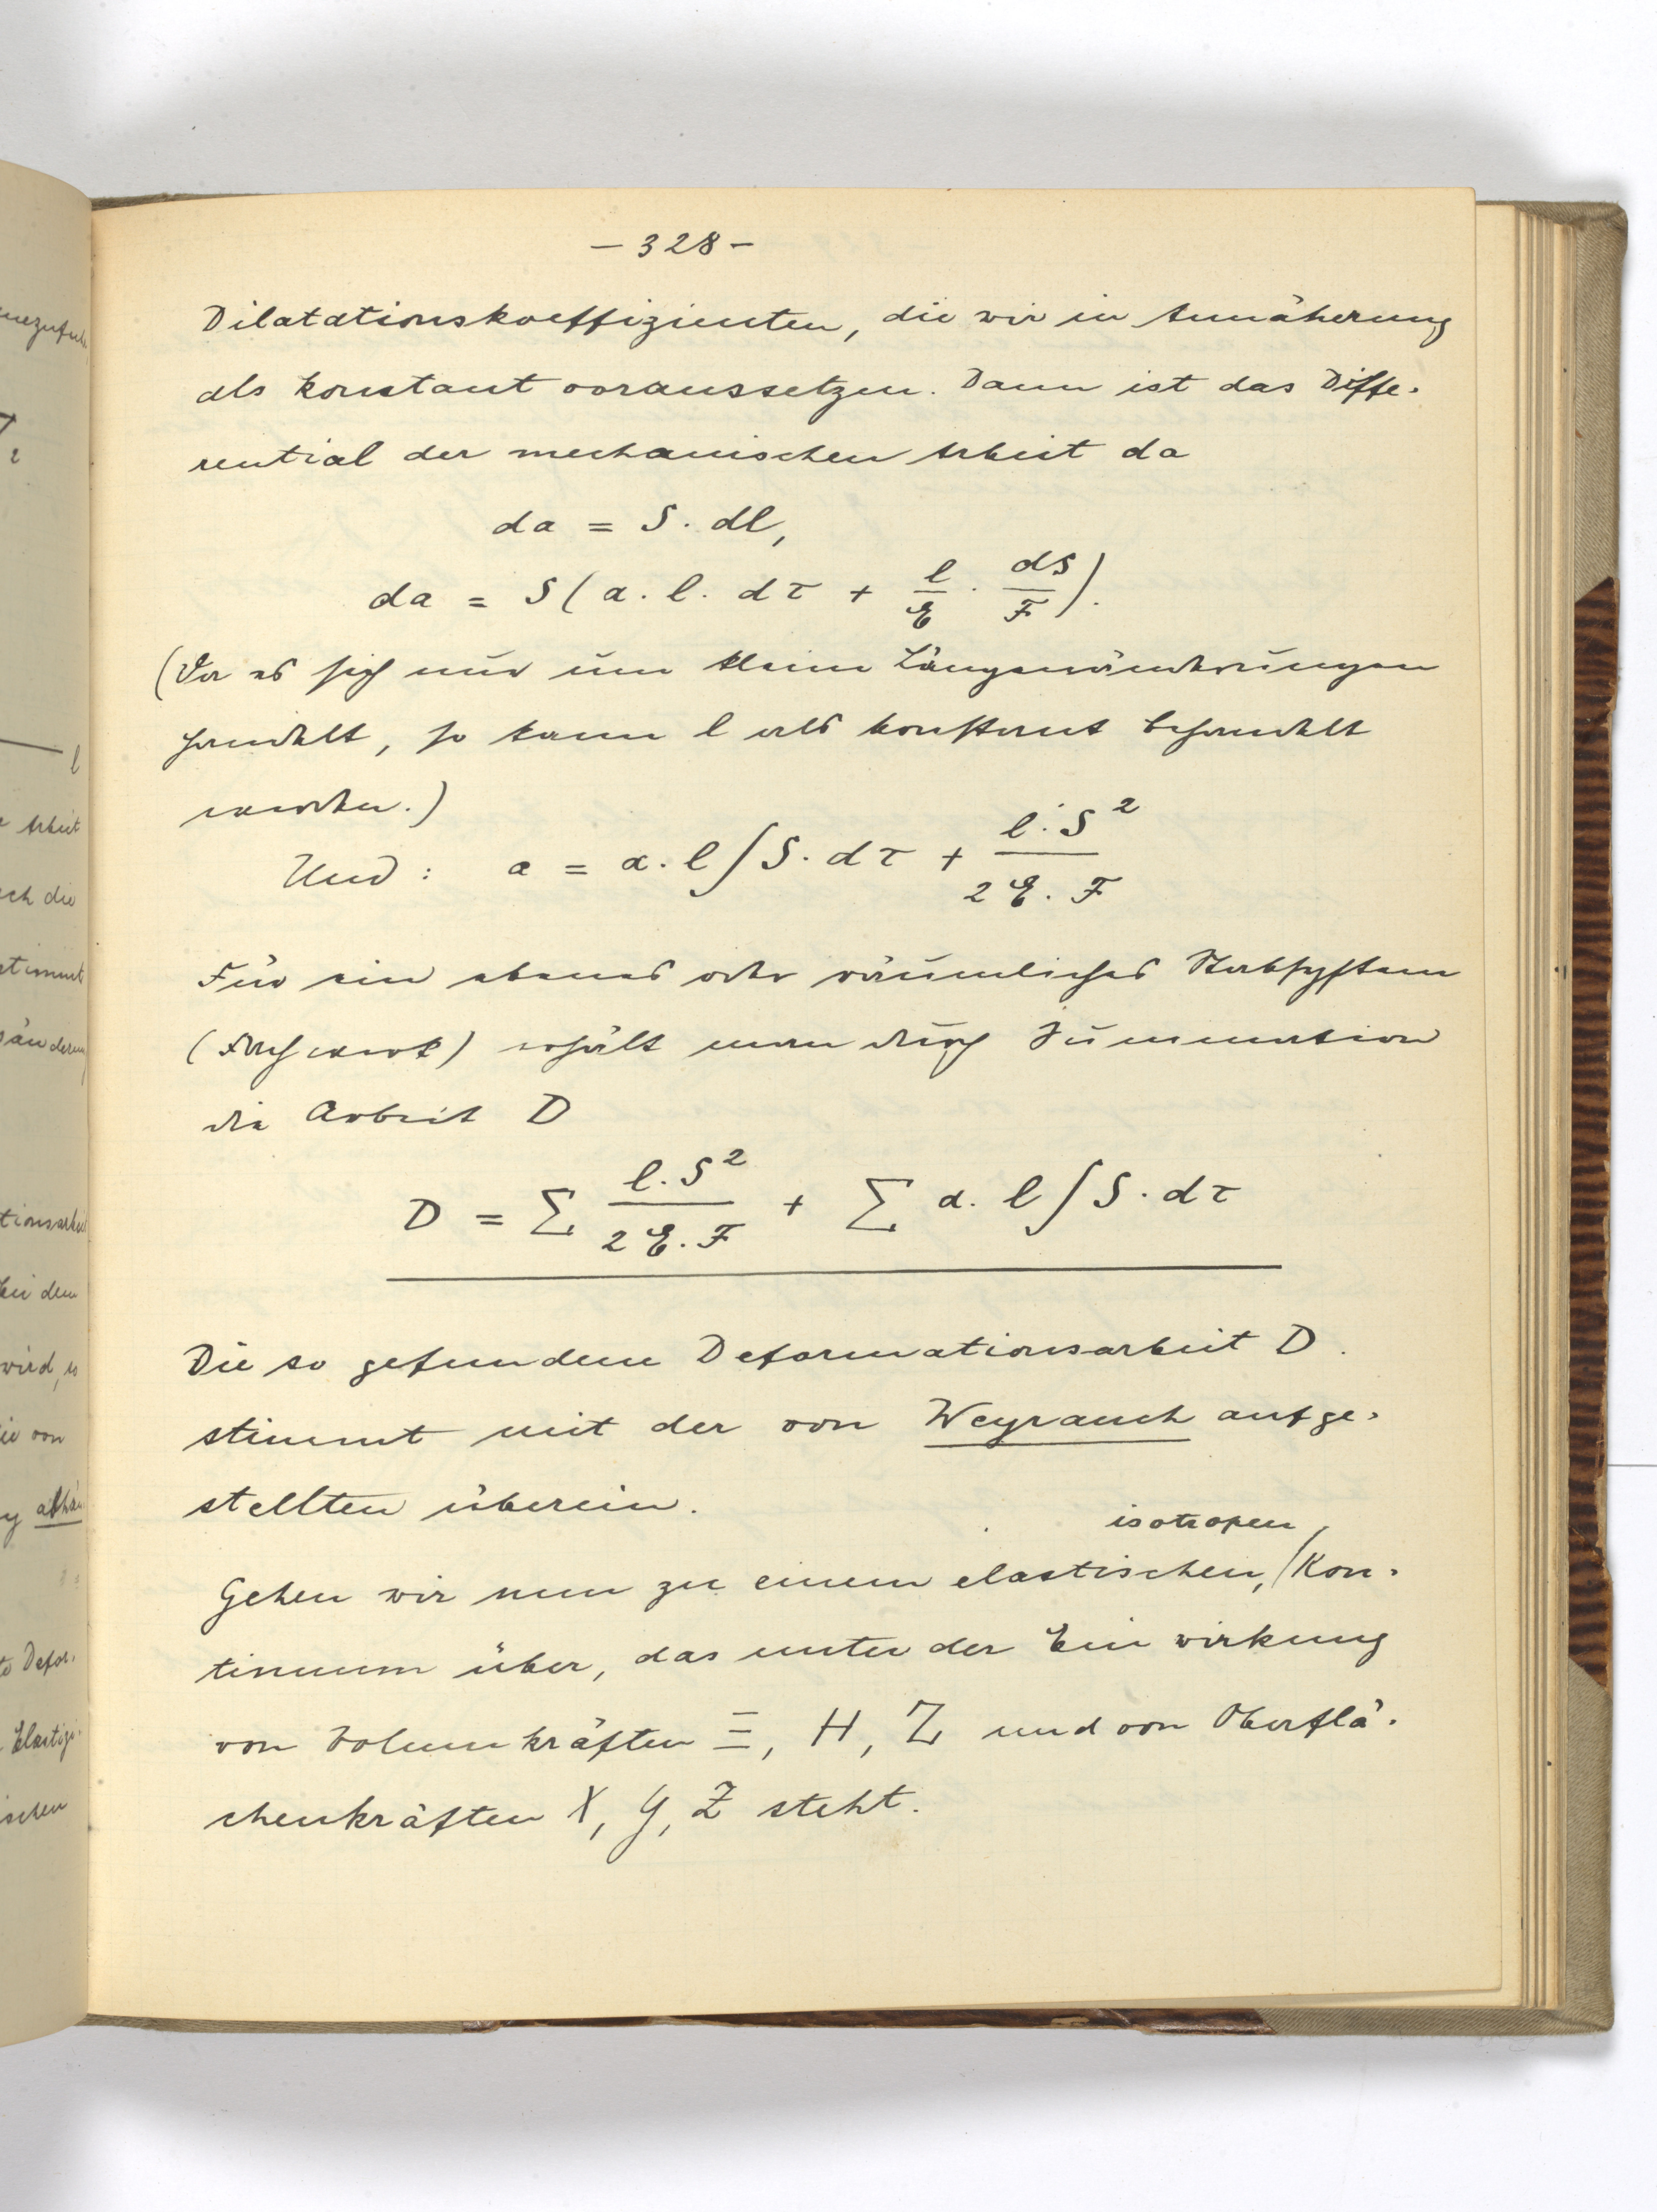 – 328 –
Dilatationskoeffizienten, die wir in Annäherung
als konstant voraussetzen. Dann ist das Diffe-
rential der mechanischen Arbeit da
da = S. dl,
da = S(α. l. dτ + l/E · dS/F).
(Da es sich nur um kleine Längenänderungen
handelt, so kann l als konstant behandelt
werden.)
Und: a = α. l ∫S. dτ + l. S²/2E. F
Für ein ebenes oder räumliches Stabsystem
(Fachwerk) erhält man durch Summation
die Arbeit D
D = Σ l. S²/2E. F + Σ α. l ∫S. dτ
Die so gefundene Deformationsarbeit D.
stimmt mit der von Weyrauch aufge-
stellten überein.
isotropen,
Gehen wir nun zu einem elastischen, /Kon-
tinuum über, das unter der Einwirkung
von Volumkräften Ξ, H, Z und von Oberflä-
chenkräften X, Y, Z steht.